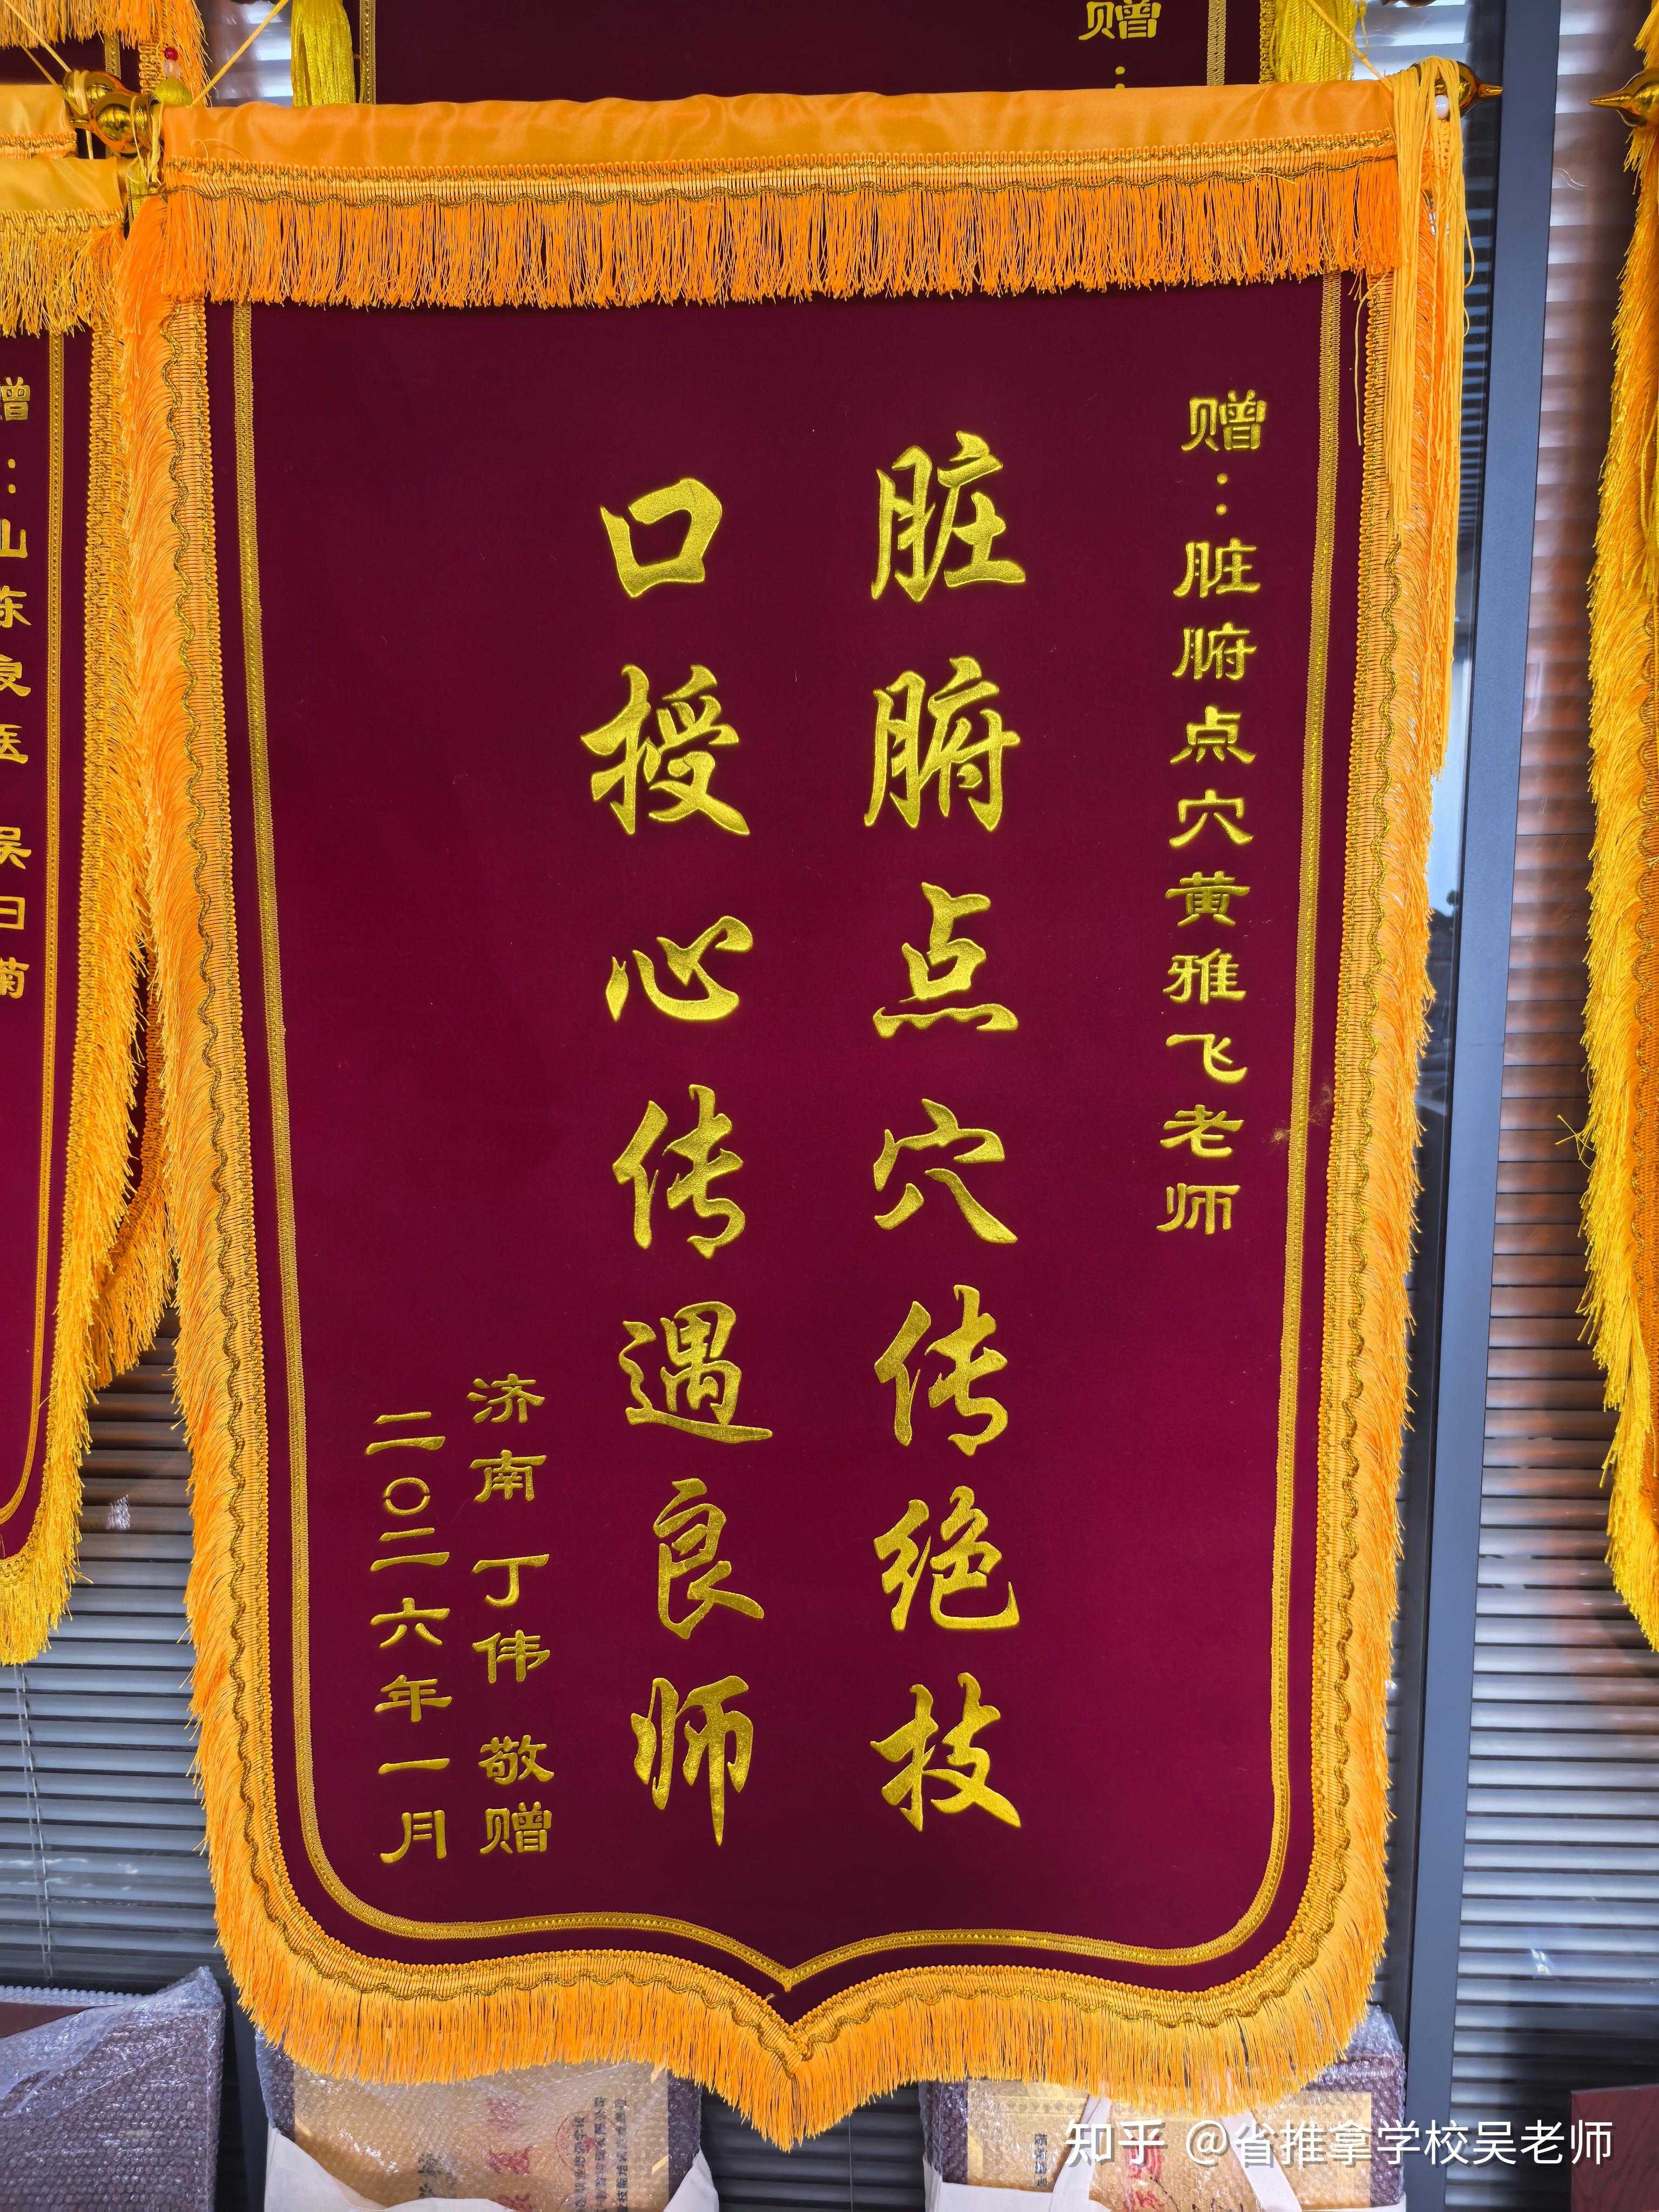 赠：
赠：脏腑点穴黄雅飞老师
脏腑点穴传绝技
口授心传遇良师
济南 丁伟 敬赠
二〇二六年一月
赠：山东良医 吴曰菊
知乎 @省推拿学校吴老师